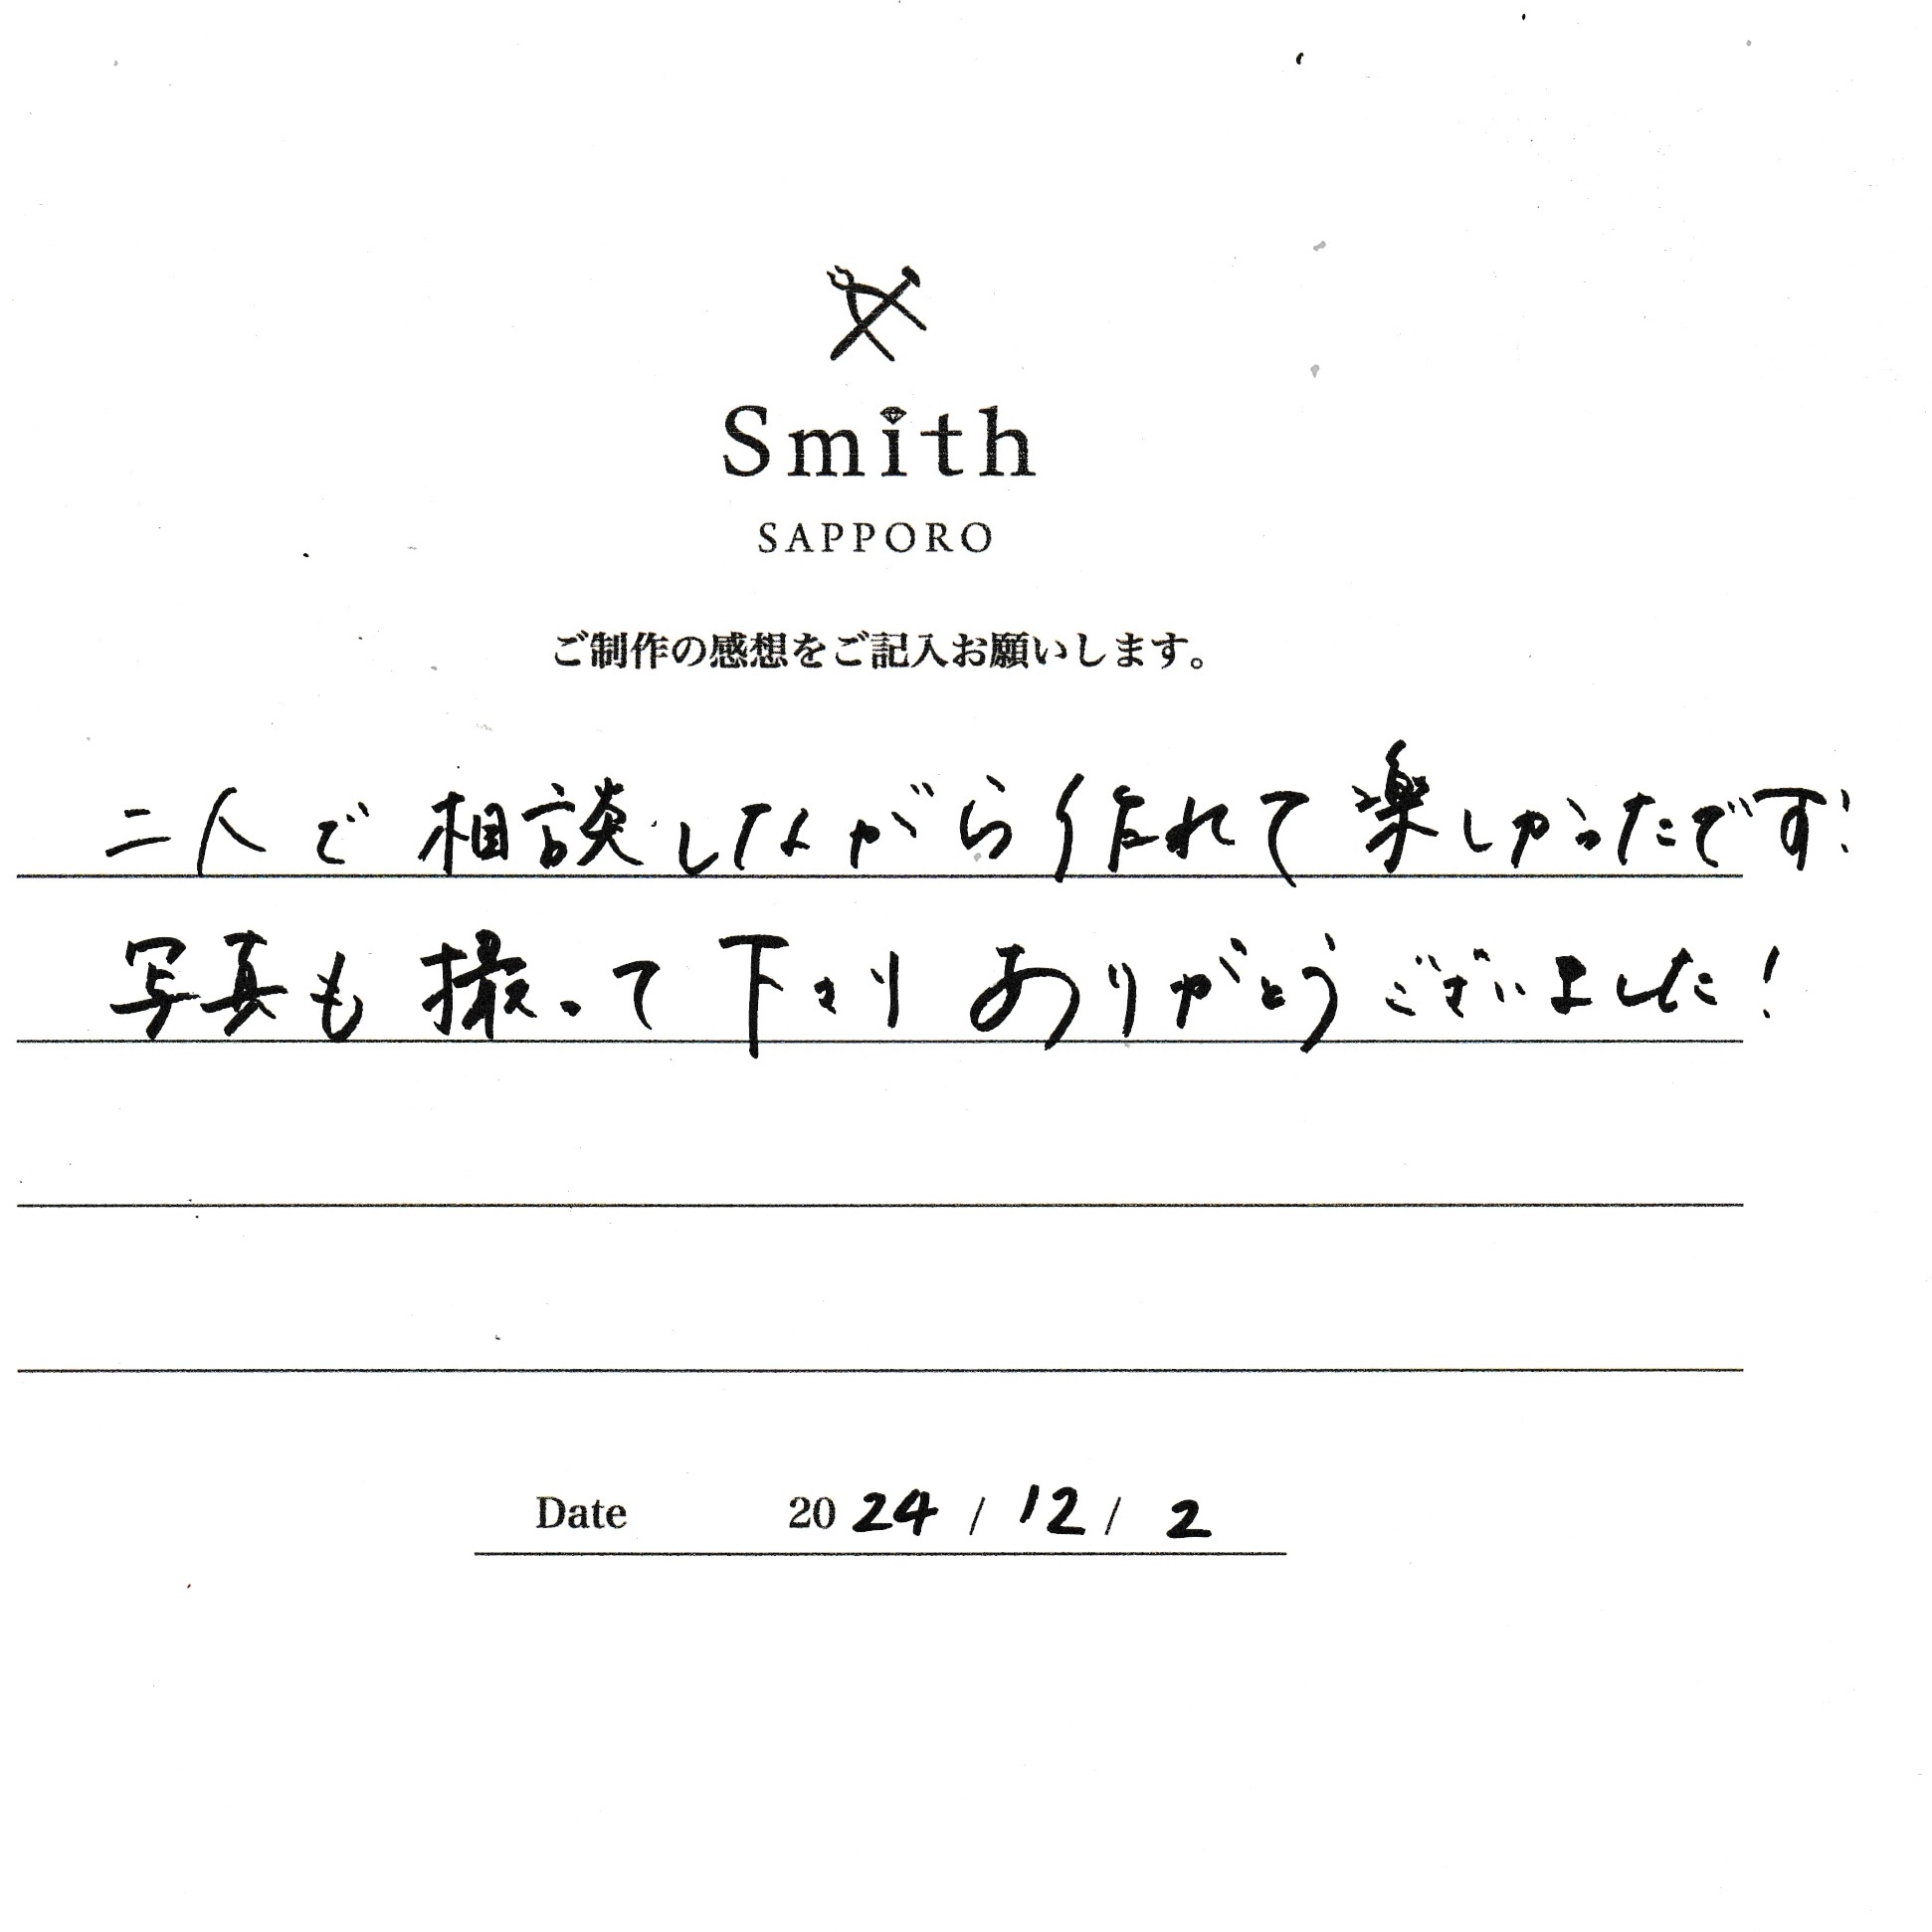 Smith
SAPPORO
ご制作の感想をご記入お願いします。
二人で相談しながら作れて楽しかったです!
写真も撮って下さりありがとうございました!
Date 2024 / 12 / 2